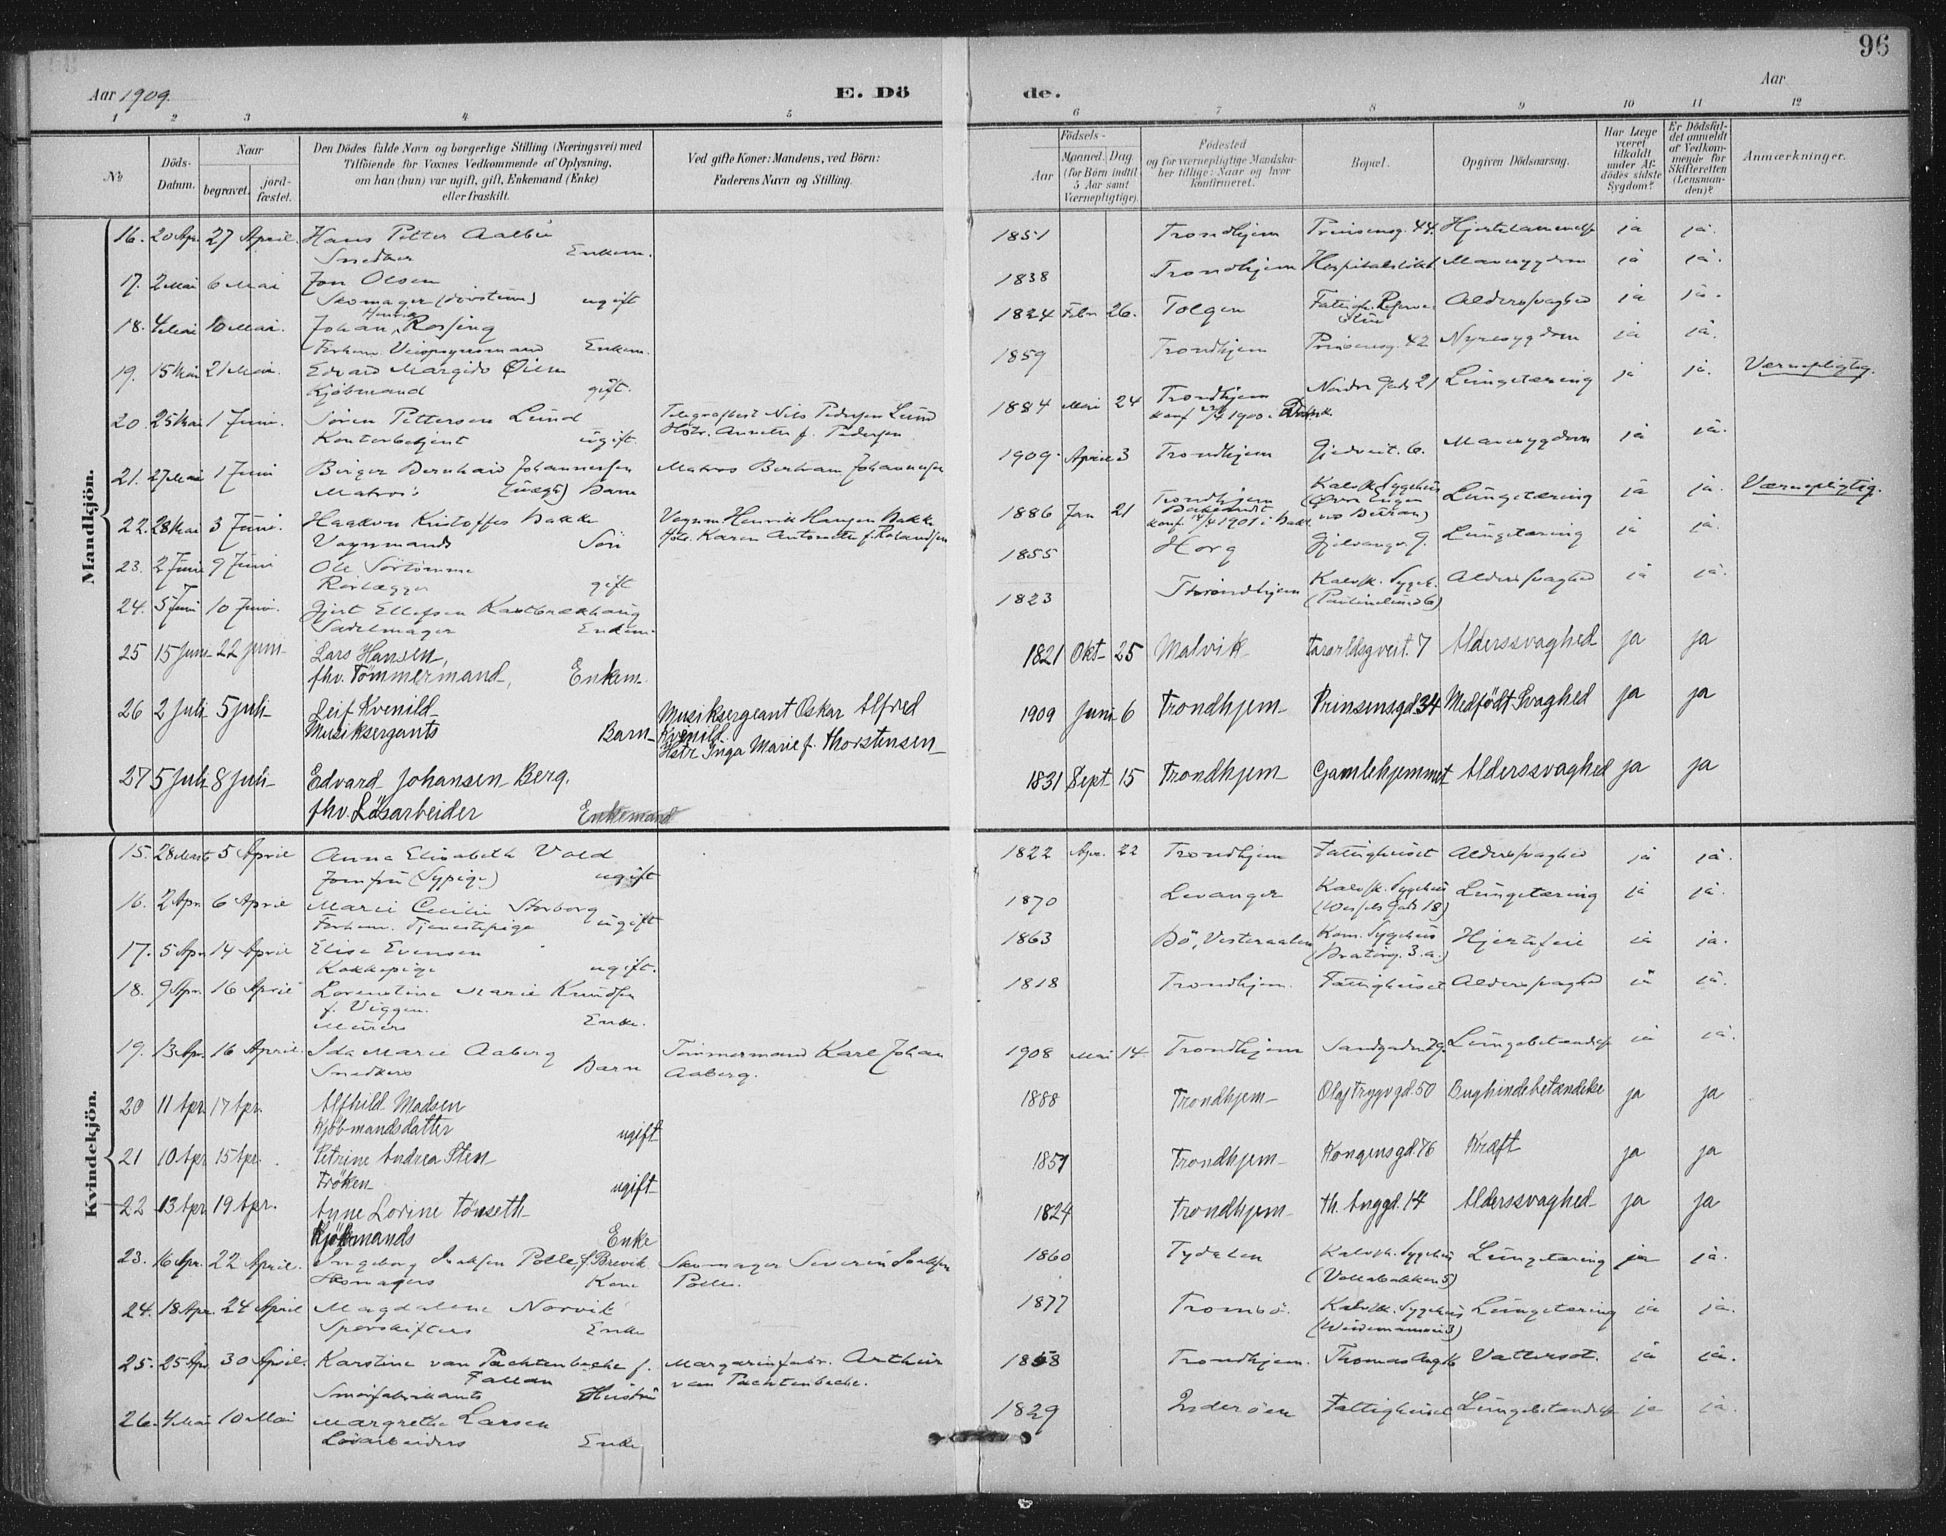 96
Aar 1909.
E. Dö
de.
Aar
1 2 3 4 5 6 7 8 9 10 11 12
No
Döds-Datum.
Naar
begravet. jord-fæstet.
Den Dödes fulde Navn og borgerlige Stilling (Næringsvei) med
Tilföiende for Voxnes Vedkommende af Oplysning,
om han (hun) var ugift, gift, Enkemand (Enke)
eller fraskilt.
Ved gifte Koner: Mandens, ved Börn:
Faderens Navn og Stilling.
Födsels-
Aar Maaned. Dag
(for Börn indtil
5 Aar samt
Værnepligtige).
Födested
og for værnepligtige Mandska-
ber tillige: Naar og hvor
konfirmeret.
Bopæl.
Opgiven Dödsaarsag.
Har Læge
været
tilkaldt
under Af-
dödes sidste
Sygdom?
Er Dödsfal-
det anmeldt
af Vedkom-
mende for
Skifteretten
(Lensman-
den)?
Anmærkninger.
Mandkjön.
16. 20 Apr. 27 April. Hans Petter Aalbu 1851 Trondhjem Prinsensg. 44. Hjertelammelse ja ja.
Snedker Enkem.
17. 2 Mai 6 Mai Jon Olsen 1838 Trondhjem Mavesygdom ja ja.
Skomager (døvstum) ugift
18. 4 Mai 10 Mai. Johan Henrik Rossing 1824 Febr 26. Tolgen Alderssvaghed ja ja.
Forhem. Enkem.
19. 15 Mai 21 Mai. Edvard Margido Øien 1859 Trondhjem Prinsensg. 42 Nyresygdom ja ja.
Kjøbmand gift.
20. 25 Mai 1 Juni. Søren Pettersen Lund Telegrafbest Nils Pedersen Lund 1884 Mai 24 Trondhjem Nordre Gade 21 Lungetæring ja ja. Værnepligtig.
Kontorbetjent ugift. Hstr. Annette f. Pedersen
21. 27 Mai 1 Juni Birger Bernhard Johannessen Matros Bertram Johannessen 1909. April 3 Trondhjem Gjedveit. 6. Mavesygdom ja ja.
Matros (uægte) Barn
22. 28 Mai 3 Juni. Haakon Kristoffer Bakke Vognm. Henrik Hansen Bakke 1886 Jan 21 Trondhjem Kalvsk. Sygehus Lungetæring ja ja. Værnepligtig.
Vognmands Søn Hstr. Karen Antonette f. Rolandsen
23. 2 Juni 9 Juni Ole Sørtømme 1855 Horg Gjelvangv. 9. Lungetæring ja ja.
Rørlægger gift
24. 5 Juni 10 Juni. Gjert Ellefsen 1823 Throndhjem Kalvsk. Sygeh. Alderssvaghed ja ja.
Sadelmager Enkem. (Paulinelund 6)
25 15 Juni 22 juni Lars Hansen, 1821 Okt 25 Malvik Alderssvaghed ja ja
fhv. Tømmermand, Enkem.
26 2 Juli 5 Juli Leif Kvenild Musiksergeant Oskar Alfred Kvenild 1909 Juni 6 Trondhjem Prinsensgd 34 Medfödt Svaghed ja ja
Musiksergants Barn Hstr Inga Marie f. Thorstensen
27 5 Juli 8 Juli Edvard Johansen Berg. 1831 Sept 15 Trondhjem Gamlehjemmet Alderssvaghed ja ja
fhv. Lösarbeider Enkemand
Kvindekjön.
15. 28 Marts 5 April Anna Elisabeth Vold 1822 Apr. 22 Trondhjem Fattighuset Alderssvaghed ja ja.
Jomfru (Sypige) ugift
16. 2 Apr. 6 April Marie Cecilie Storborg 1870 Levanger Kalvsk. Sygehus Lungetæring ja ja.
Forhem. Tjenestepige ugift (Wessels Gade 18)
17. 5 Apr 14 April Elise Evensen 1863 Bö, Vesteraalen Kom. Sygehus Hjertefeil ja ja.
Kokkepige ugift. (Bratörg. 3. a.)
18. 9 Apr. 16 April Lorentine Marie Knudsen 1818 Trondhjem. Fattighuset Alderssvaghed ja ja.
f. Viggen.
Murers Enke.
19. 13 Apr. 16 April. Ida Marie Aaberg Tømmermand Karl Johan 1908 Mai 14 Trondhjem Lungebetændelse ja ja.
Snedkers Barn Aaberg.
20 11 Apr 17 Apr. Alfhild Madsen 1888 Trondhjem Olaf Trygv gd. 50 Bughindebetændelse ja ja
Kjöbmandsdatter ugift
21 10 Apr 15 Apr. Petrine Andrea Sten 1851 Trondhjem Kongensgd. 76 Kræft ja ja
Fröken ugift
22 13 Apr 19 Apr. Anne Lorine Tönseth 1824 Trondhjem Th. Anggd. 14 Alderssvaghed ja ja
Kjöbmands Enke
23. 16 Apr. 22 April. Ingeborg Isaksen Polle f. Brevik Skomager Severin Isaksen 1860 Tydalen Kalvsk. Sygehus Lungetæring ja ja.
Skomagers Kone Polle. (Vollabakken 5)
24. 18 Apr. 24 April Magdalene Norvik 1877 Tromsö. Kalvsk. Sygehus Lungetæring ja ja.
Sporskifters Enke
25. 25 Apr 30 April. Karstine van Pachtenbecke f. Margarinfabr. Arthur 1868 Trondhjem. Vattersot. ja ja.
Fallan van Pachtenbecke.
Smörfabrikants Hustru
26. 4 Mai 10 Mai Margrethe Larsen 1829 Inderøen Fattighuset Lungebetændelse ja ja.
Løsarbeiders Enke